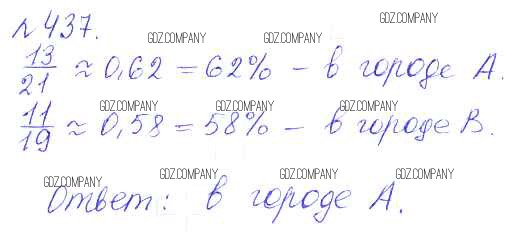 №437.
GDZ.COMPANY
GDZ.COMPANY GDZ.COMPANY
13/21 ≈ 0,62 = 62% – в городе А.
GDZ.COMPANY GDZ.COMPANY GDZ.COMPANY
11/19 ≈ 0,58 = 58% – в городе В.
GDZ.COMPANY GDZ.COMPANY GDZ.COMPANY GDZ.COMPANY
Ответ: в городе А.